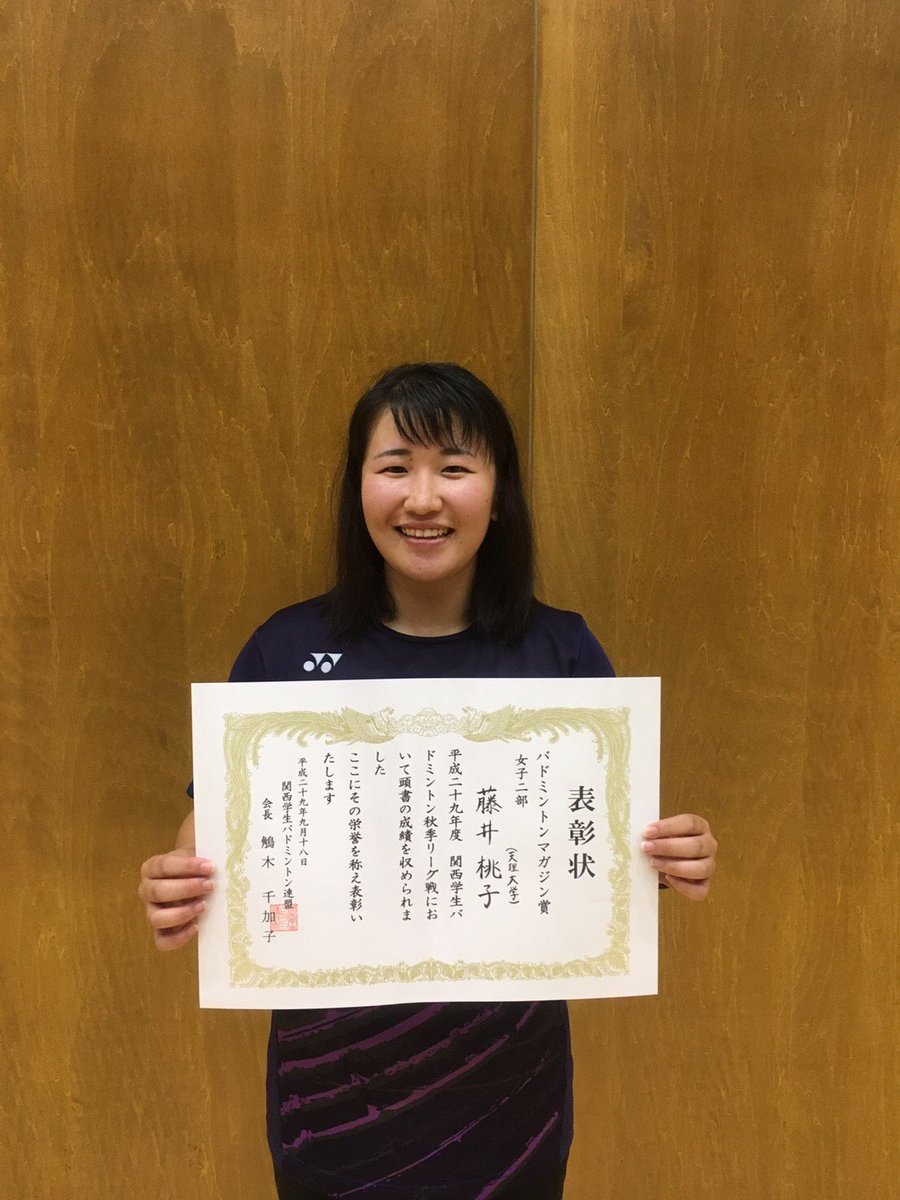 表彰状
バドミントンマガジン賞
女子二部
藤井桃子
(天理大学)
平成二十九年度　関西学生バ
ドミントン秋季リーグ戦にお
いて頭書の成績を収められま
した
ここにその栄誉を称え表彰い
たします
平成二十九年九月十八日
関西学生バドミントン連盟
会長　鵤木　千加子